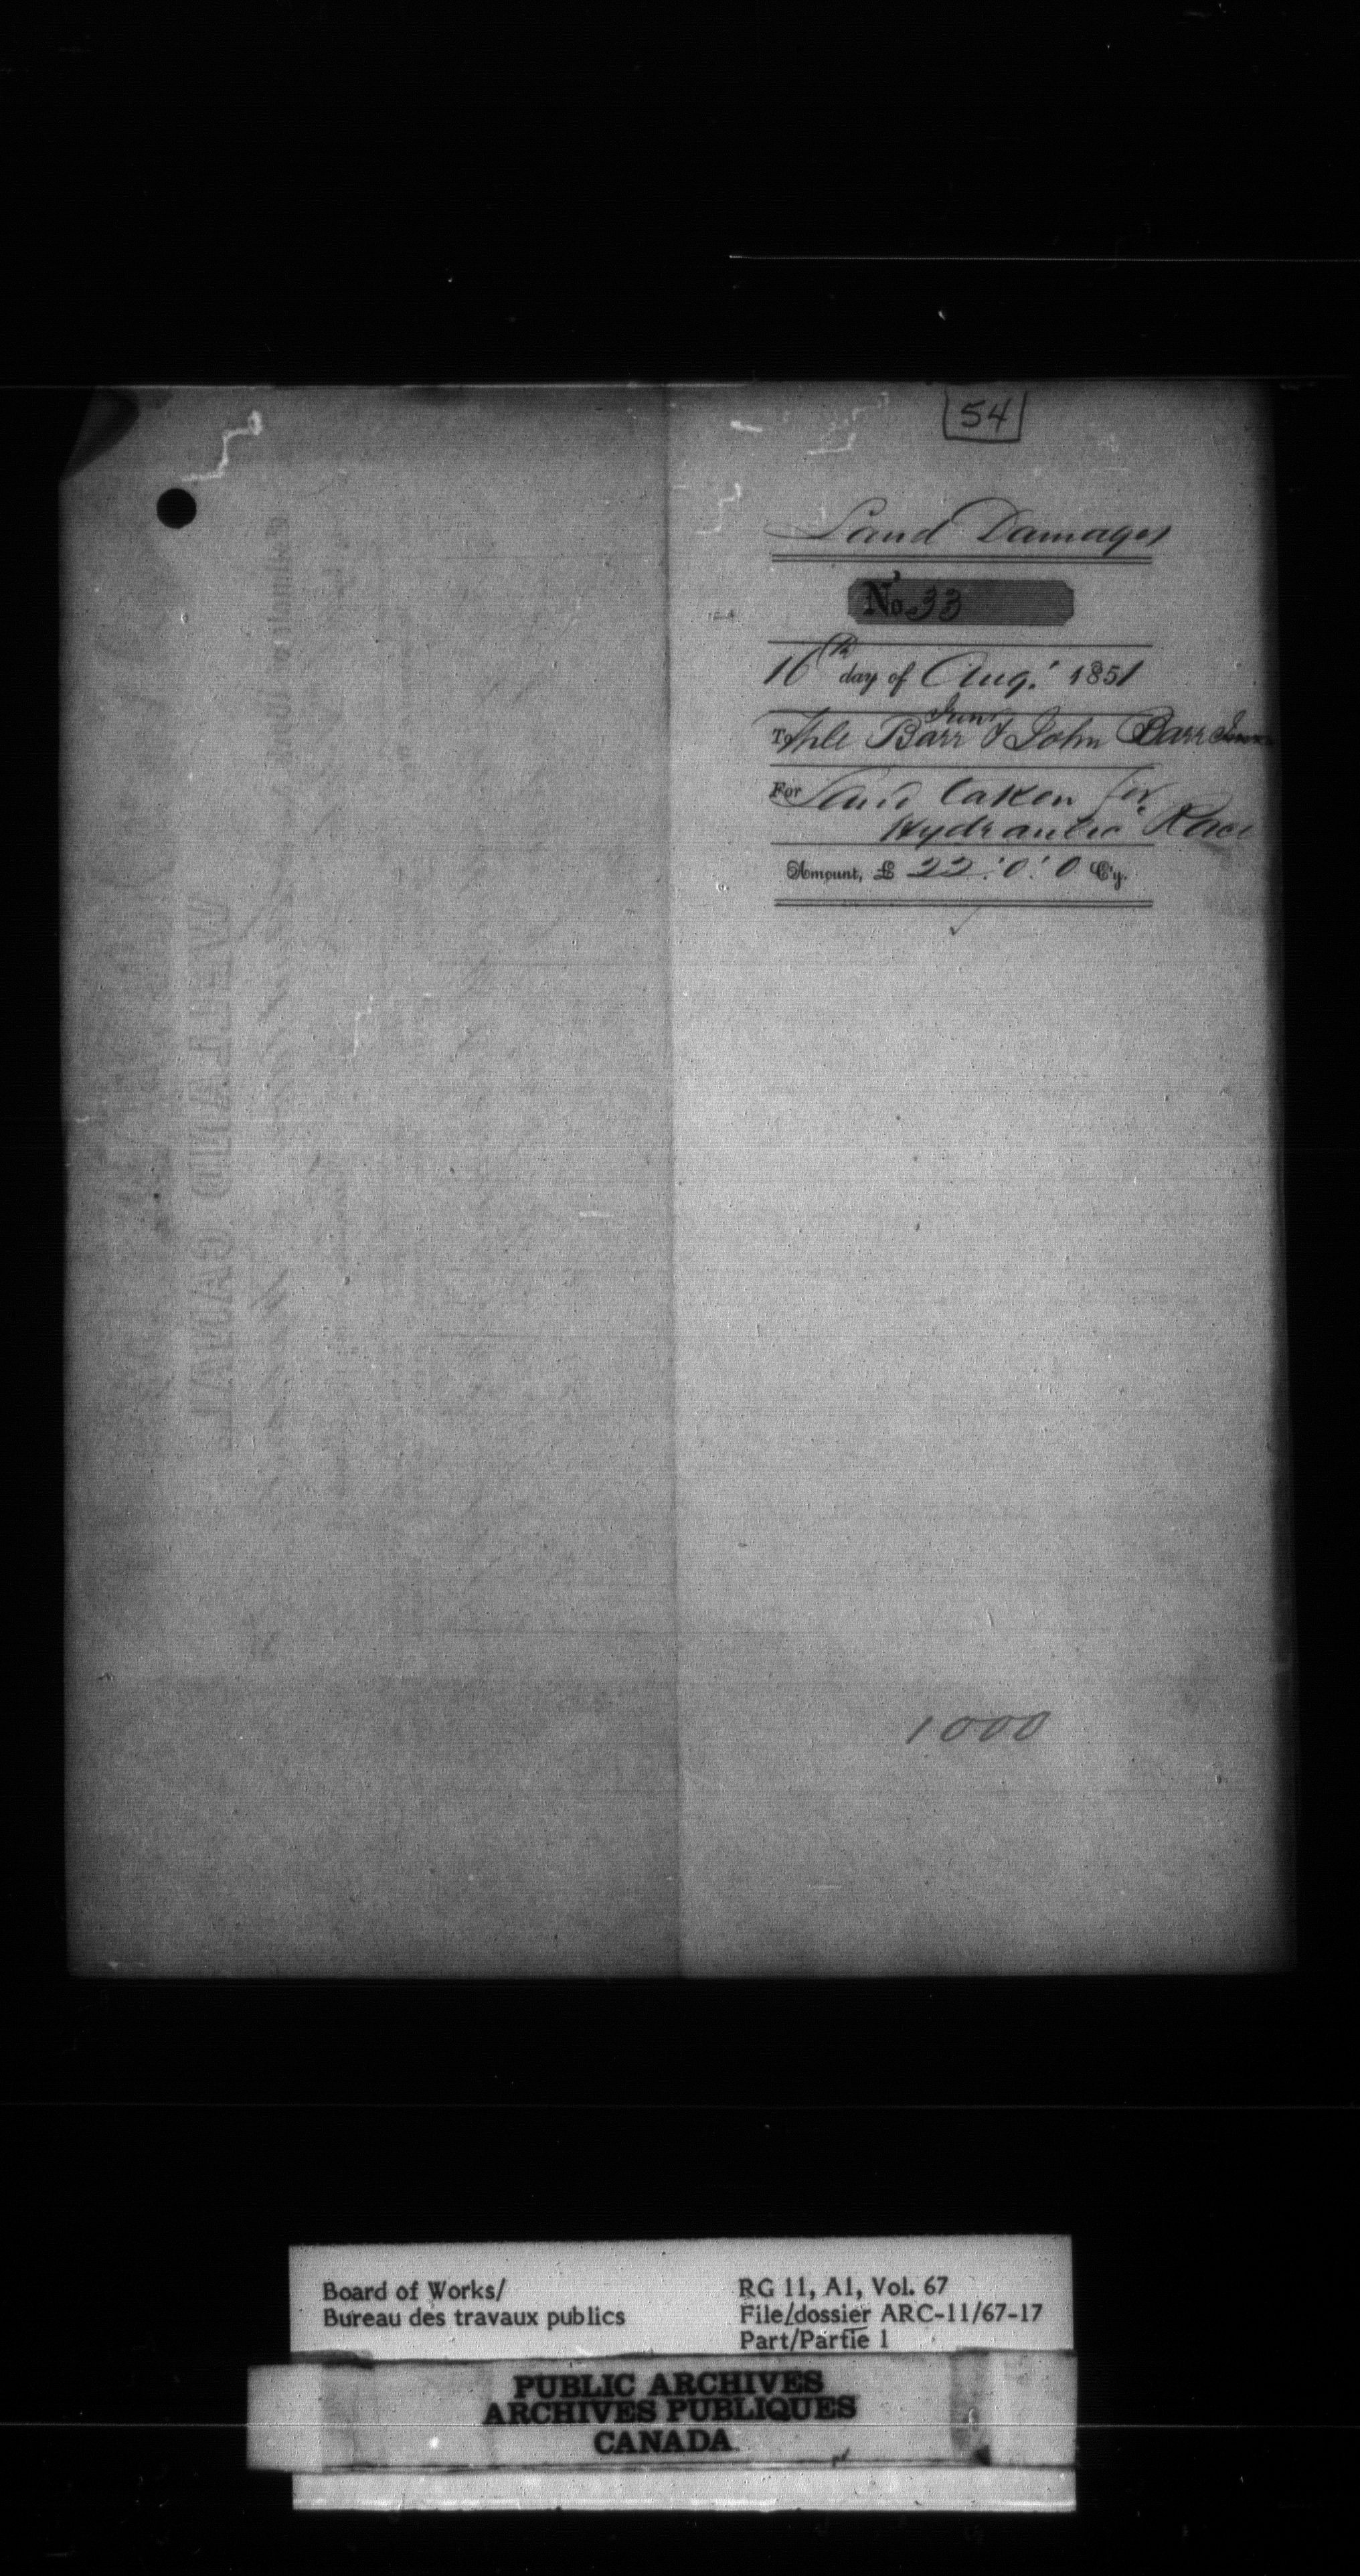 54
Land Damages
No. 33
16th day of Aug.' 1851
Junr
To Barr & John Barr
For Land taken for
Hydraulic Race
Amount, £ 22 : 0 : 0 C'y.
1000
WELLAND CANAL
Board of Works/
Bureau des travaux publics
RG 11, A1, Vol. 67
File/dossier ARC-11/67-17
Part/Partie 1
PUBLIC ARCHIVES
ARCHIVES PUBLIQUES
CANADA